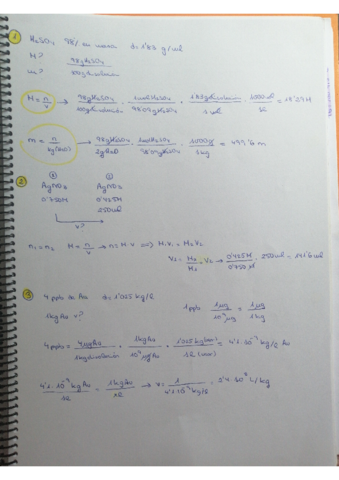 ① H₂SO₄ 98% en masa d=1'83 g/ml
M? 98g H₂SO₄
m? 100g disolución
M = n/V → 98g H₂SO₄/100g disolución · 1mol H₂SO₄/98'04g H₂SO₄ · 1'83g disolución/1 ml · 1000ml/1L = 18'29M
m = n/kg → 98g H₂SO₄/2g · 1mol H₂SO₄/98'04g H₂SO₄ · 1000g/1kg = 499'8 m
②
AgNO₃ AgNO₃
0'750M 0'425M
250ml
V?
n₁ = n₂ M = n/V → n = M·V ⟹ M₁V₁ = M₂V₂
V₁ = M₂/M₁ · V₂ → 0'425M/0'750M · 250ml = 141'6 ml
③
4 ppb de Au d = 1'025 kg/L
1kg Au = ? 1 ppb = 1μg/10⁹μg = 1μg/1kg
4 ppb = 4μg Au/1kg disolución · 1kg Au/10⁹μg Au · 1'025kg (mar)/1L (mar) = 4'1·10⁻⁹ kg/L Au
4'1·10⁻⁹ kg Au/1L = 1kg Au → x = 1/4'1·10⁻⁹ kg/L = 2'4·10⁸ L/kg